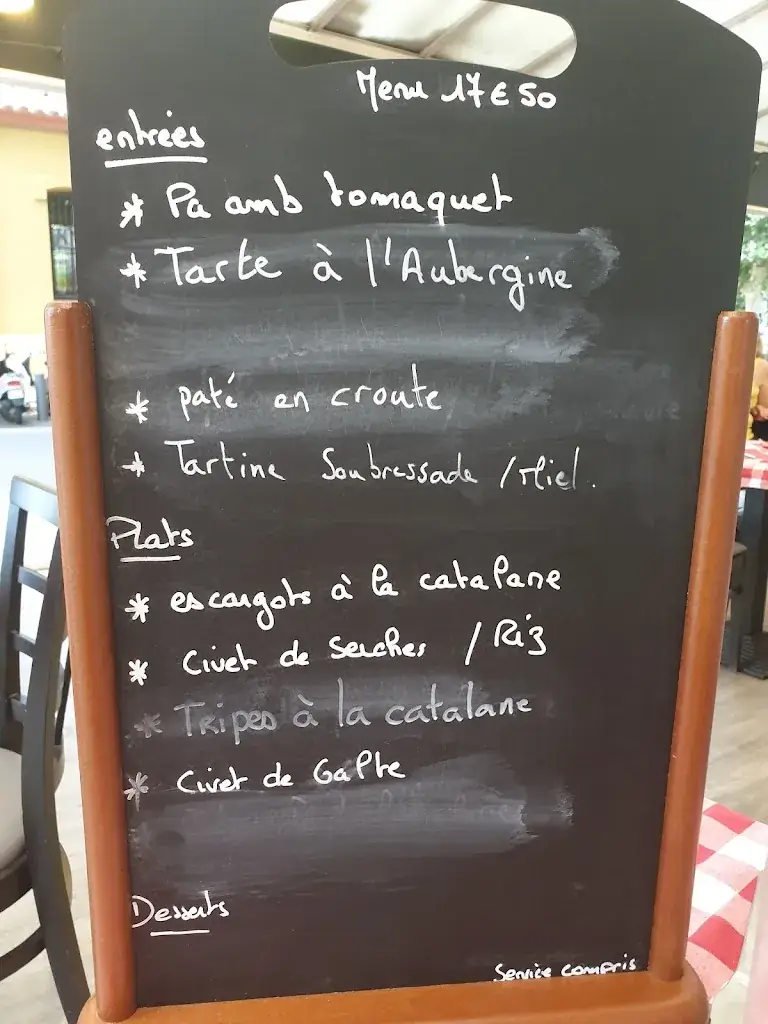 Menu 17€50
entrées
* Pa amb tomaquet
* Tarte à l'Aubergine
* paté en croute
* Tartine Soubressade / Miel.
Plats
* escargots à la catalane
* Civet de Seiches / Riz
* Tripes à la catalane
* Civet de Galte
Desserts
Service compris